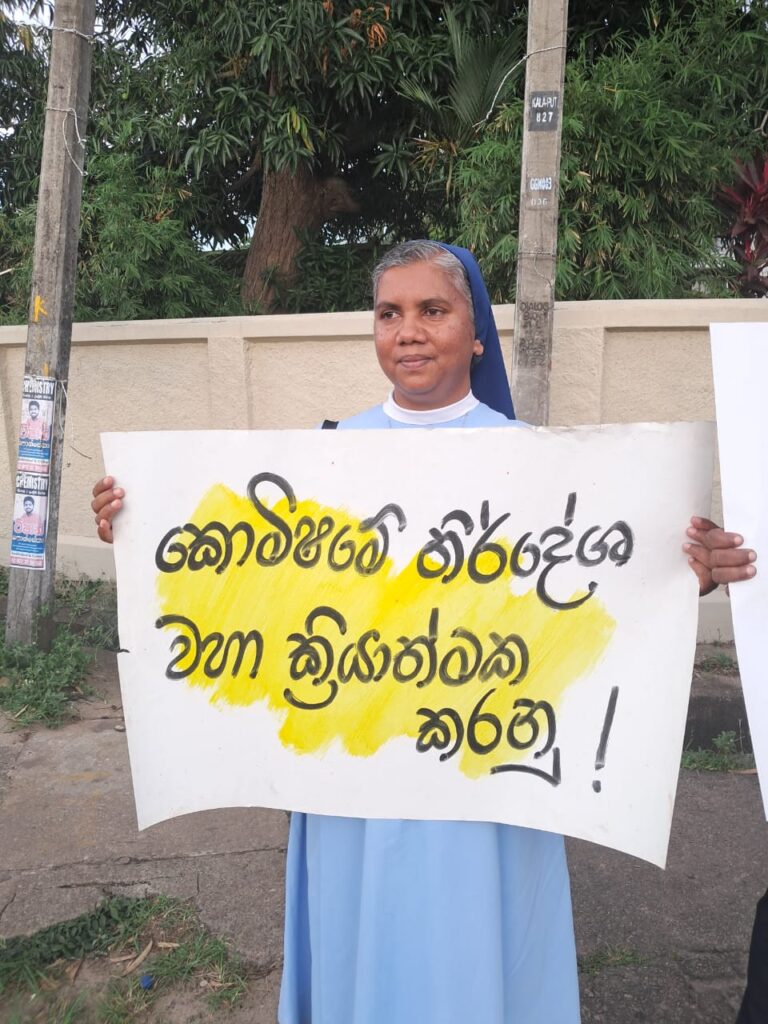 කොමිෂමේ නිර්දේශ
වහා ක්‍රියාත්මක
කරනු !
KALA-PUT
827
036
DIALOG
CHEMISTRY
CHEMISTRY